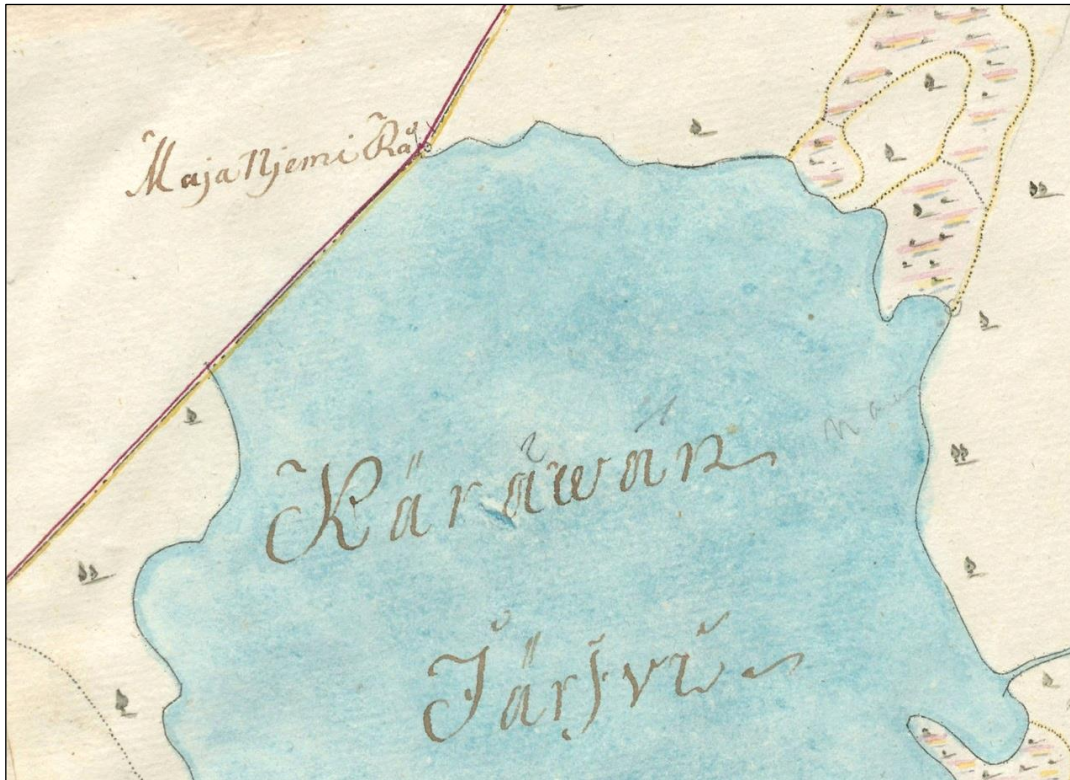 Maja Njemi Rå
Käräwän
Järjvi